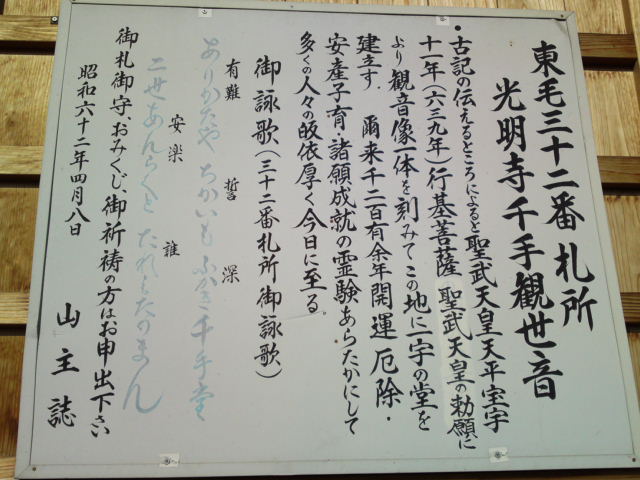 東毛三十二番札所
光明寺千手観世音
・古記の伝えるところによると聖武天皇天平宝字
十一年(六三九年)行基菩薩 聖武天皇の勅願に
より観音像一体を刻みてこの地に一宇の堂を
建立す。爾来千二百有余年開運厄除・
安産子育・諸願成就の霊験あらたかにして
多くの人々の皈依厚く今日に至る。
御詠歌(三十二番札所御詠歌)
有難 誓 深
ありかたや ちかいも ふかき 千手堂
安楽 誰
二世あんらくと たれもたのまん
御札御守、おみくじ御祈祷の方はお申出下さい
昭和六十二年四月八日
山主誌